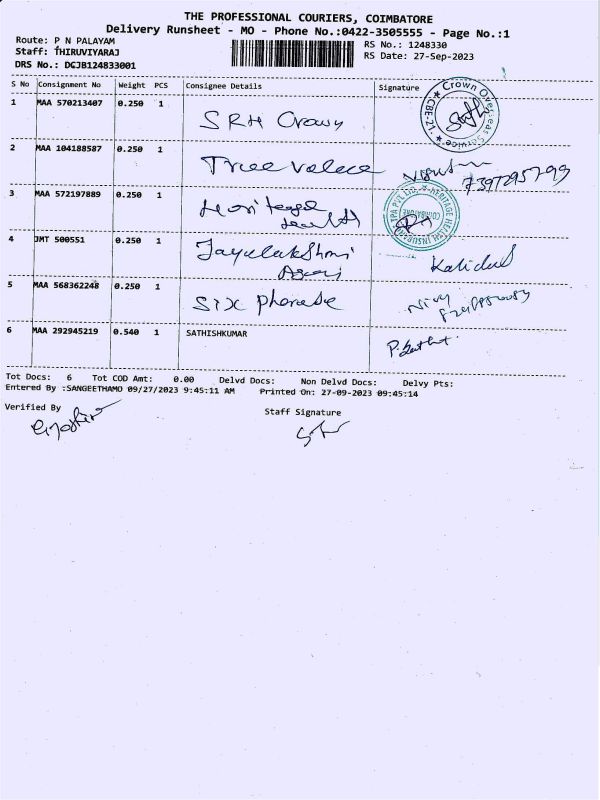 THE PROFESSIONAL COURIERS, COIMBATORE
Delivery Runsheet - MO - Phone No.:0422-3505555 - Page No.:1
Route: P N PALAYAM
RS No.: 1248330
Staff: THIRUVIYARAJ
RS Date: 27-Sep-2023
DRS No.: DCJB124833001
S No Consignment No Weight PCS Consignee Details Signature
1 MAA 570213407 0.250 1 SRH Crown
Crown Overseas Service CBE-21
2 MAA 104188587 0.250 1 Tree value
3 MAA 572197889 0.250 1 Heritage Health
HERITAGE HEALTH INSURANCE TPA PVT LTD. COIMBATORE
4 JMT 500551 0.250 1 Jayalakshmi
Kalidass
5 MAA 568362248 0.250 1 Six Phrase
6 MAA 292945219 0.540 1 SATHISHKUMAR
Tot Docs: 6 Tot COD Amt: 0.00 Delvd Docs: Non Delvd Docs: Delvy Pts:
Entered By :SANGEETHAMO 09/27/2023 9:45:11 AM Printed On: 27-09-2023 09:45:14
Verified By
Staff Signature